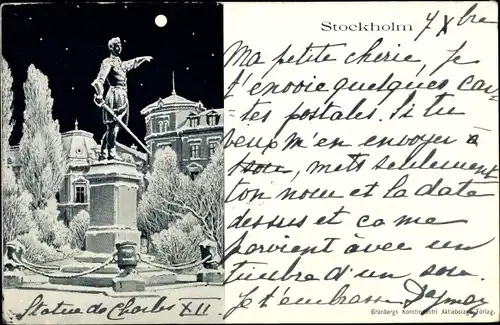 Stockholm
7 Xbre
Ma petite chérie, Je
t'envoie quelques car-
tes postales. Si tu
veux m'en envoyer à
mets seulement
ton nom et la date
dessus et ça me
parvient avec un
timbre d'un sou.
Je t'embrasse Dagmar
Granbergs Konstindustri Aktiebolags Förlag.
Statue de Charles XII